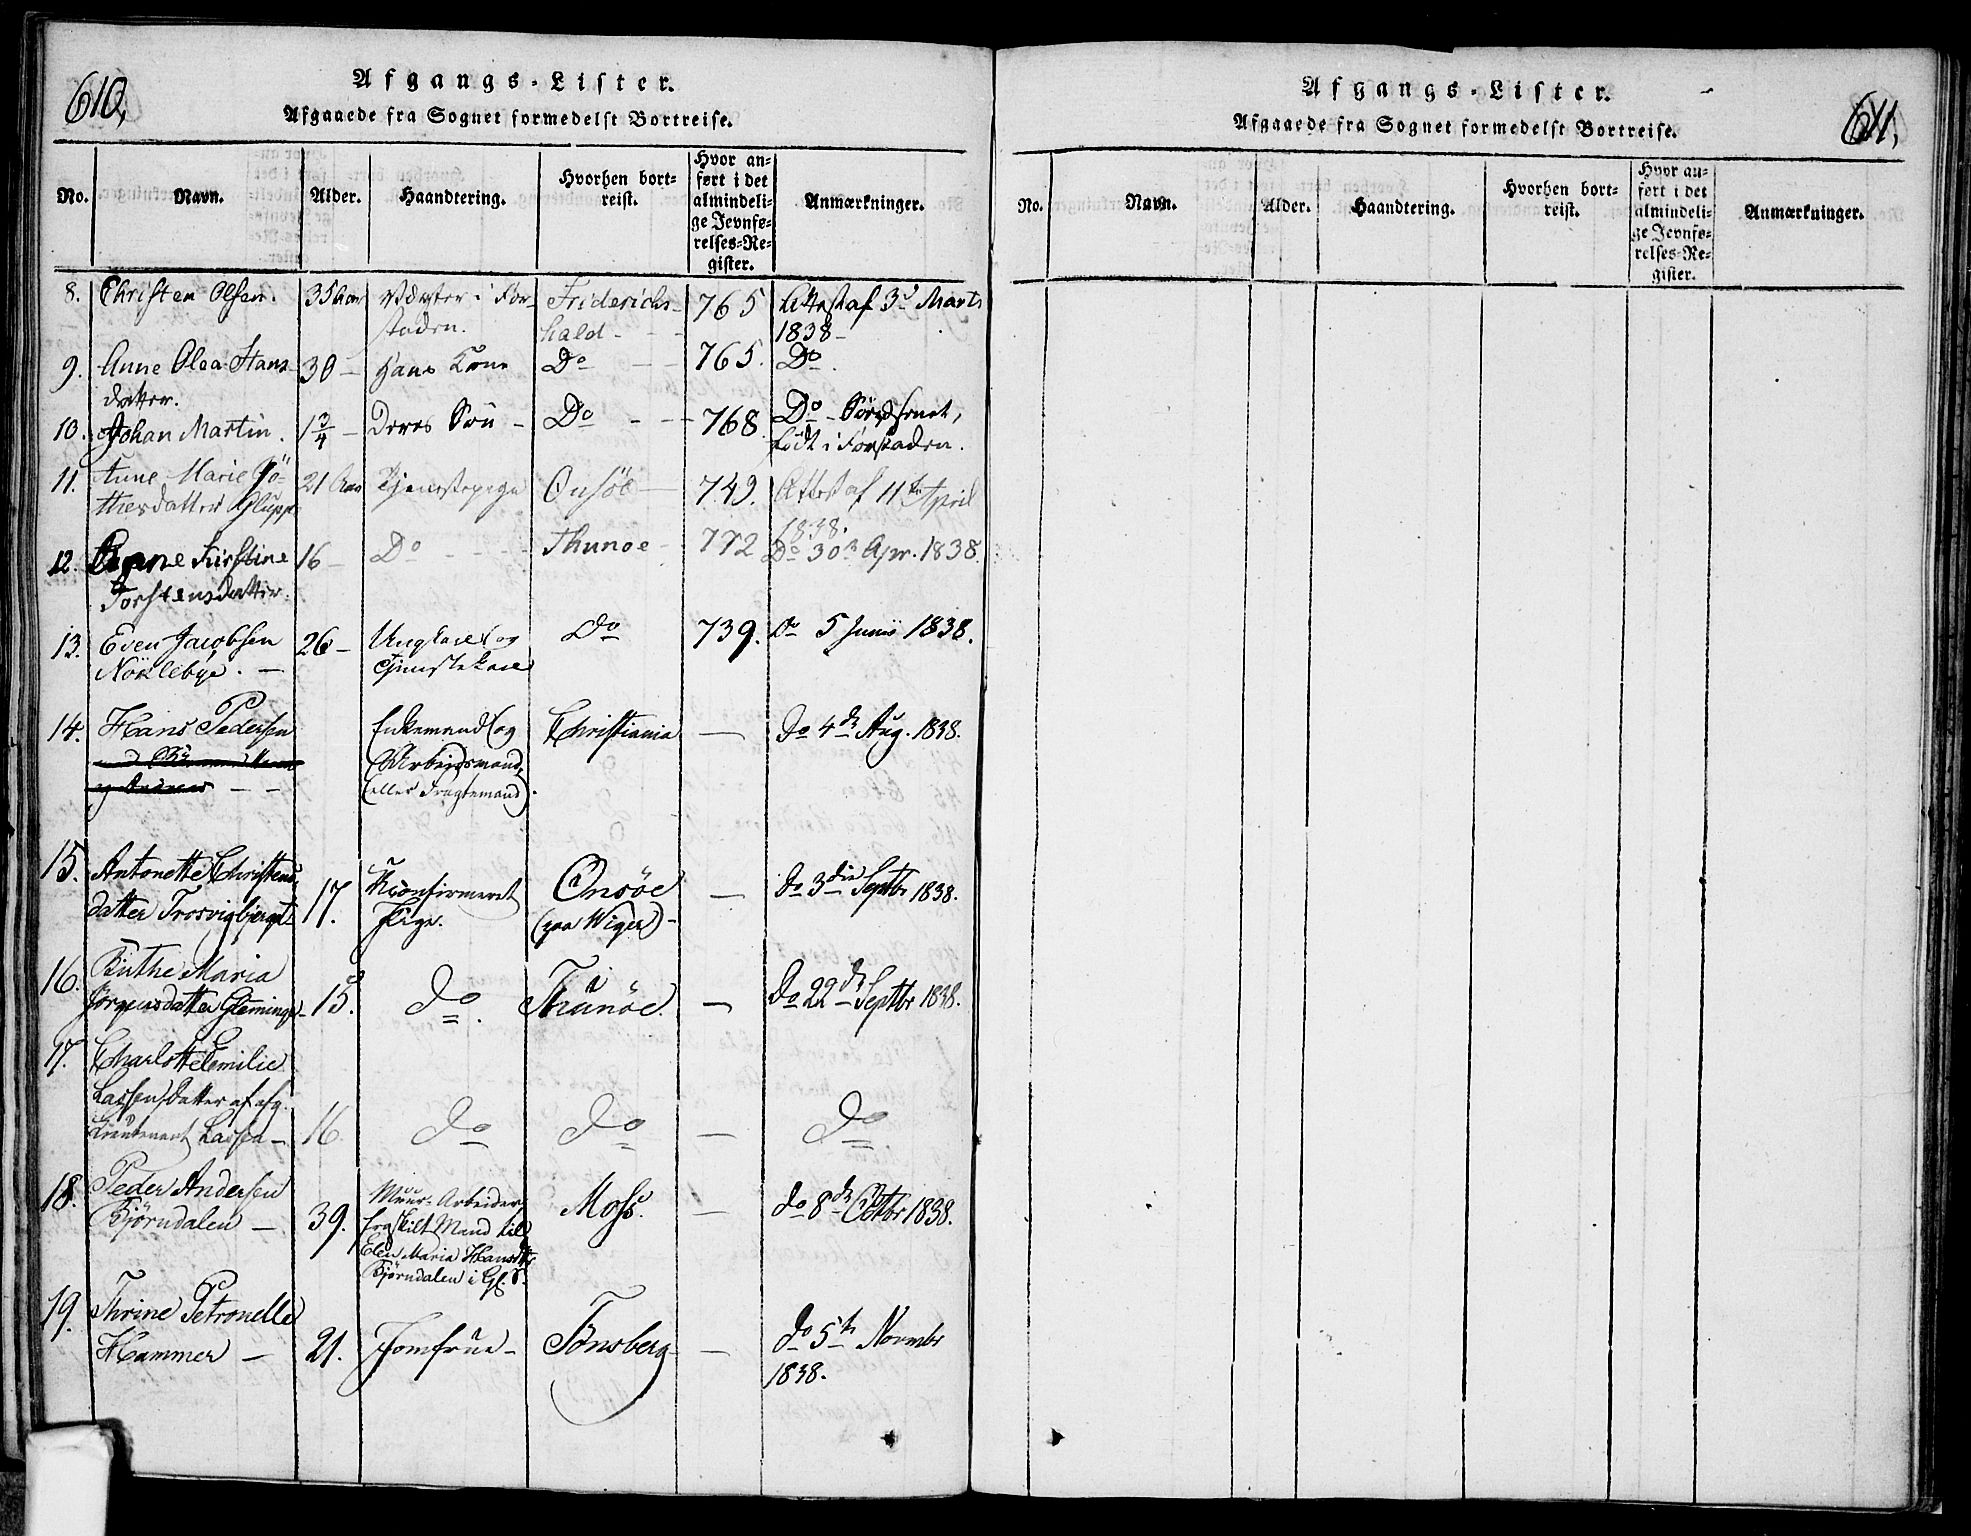 610.
Afgangs-Lister.
Afgaaede fra Sognet formedelst Bortreise.
No. Navn. Alder. Haandtering. Hvorhen bortreist. Hvor anført i det almindelige Jevnførelses-Register. Anmærkninger.
8. Christen Olsen. 35 Aar i For- Friderichs- 765 Attest af 3d Marts
staden. hald - 1838 -
9. Anne Olea Hans- 30 - Hans Kone Do - 765. Do.
datter.
10. Johan Martin. 1 3/4 - Deres Søn - Do - 768 Do -
født i Forstaden.
11. Anne Marie 21 Aar Tjenestepige Onsöe - 749. Attest af 11te April
1838.
12. Anne Kirstine 16 - Do - Thunøe - 772 Do 30te Apr. 1838.
Torstensdatter.
13. Even Jacobsen 26 - Ungkarl og Do 739. Do 5 Junii 1838.
Nöklebye. - Tjenstekarl
14. Hans Pedersen Enkemand og Christiania - Do 4de Aug. 1838.
Arbeidsmand,
(eller Fragtemand).
15. Antonette Christens- Konfirmeret Onsöe - Do 3die Septbr 1838.
datter Trosvigbjerget 17. Pige. (paa Wiger) -
16. Birthe Maria
Jörgensdatter Glemminge - 15. do. Thunöe. - Do 22de Septbr 1838.
17. Charlotte Emilie
Lassen, Datter af afg.
Lieutenant Lassen - 16. do do - do.
18. Peder Andersen Muur-Arbeider, Moss. - do 8de Octbr 1838.
Bjørndalen - 39. fraskilt Mand til
Elen Maria Hansdtr
Bjørndalen i Gl. S.
19. Thrine Petronelle
Hammer - 21. Jomfrue - Tønsberg - do 5te Novmbr
1838.
611.
Afgangs-Lister.
Afgaaede fra Sognet formedelst Bortreise.
No. Navn. Alder. Haandtering. Hvorhen bortreist. Hvor anført i det almindelige Jevnførelses-Register. Anmærkninger.